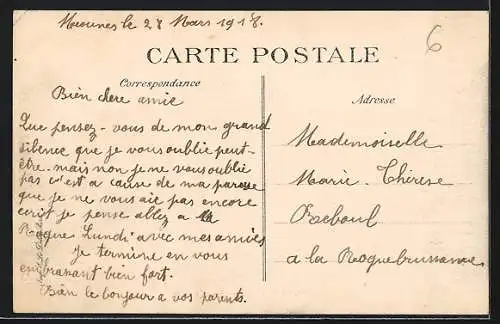 Meounes le 28 Mars 1918.
6
CARTE POSTALE
Correspondance
Adresse
Bien chere amie
Que pensez-vous de mon grand
silence que je vous oublie peut-
être. mais non je ne vous oublie
pas c'est a cause de ma paresse
que je ne vous aie pas encore
ecrit je pense allez a la
Roque Lundi avec mes amies
Je termine en vous
embrassant bien fort.
Bien le bonjour a vos parents.
Mademoiselle
Marie. Thérèse
Reboul
a la Roquebrussanne